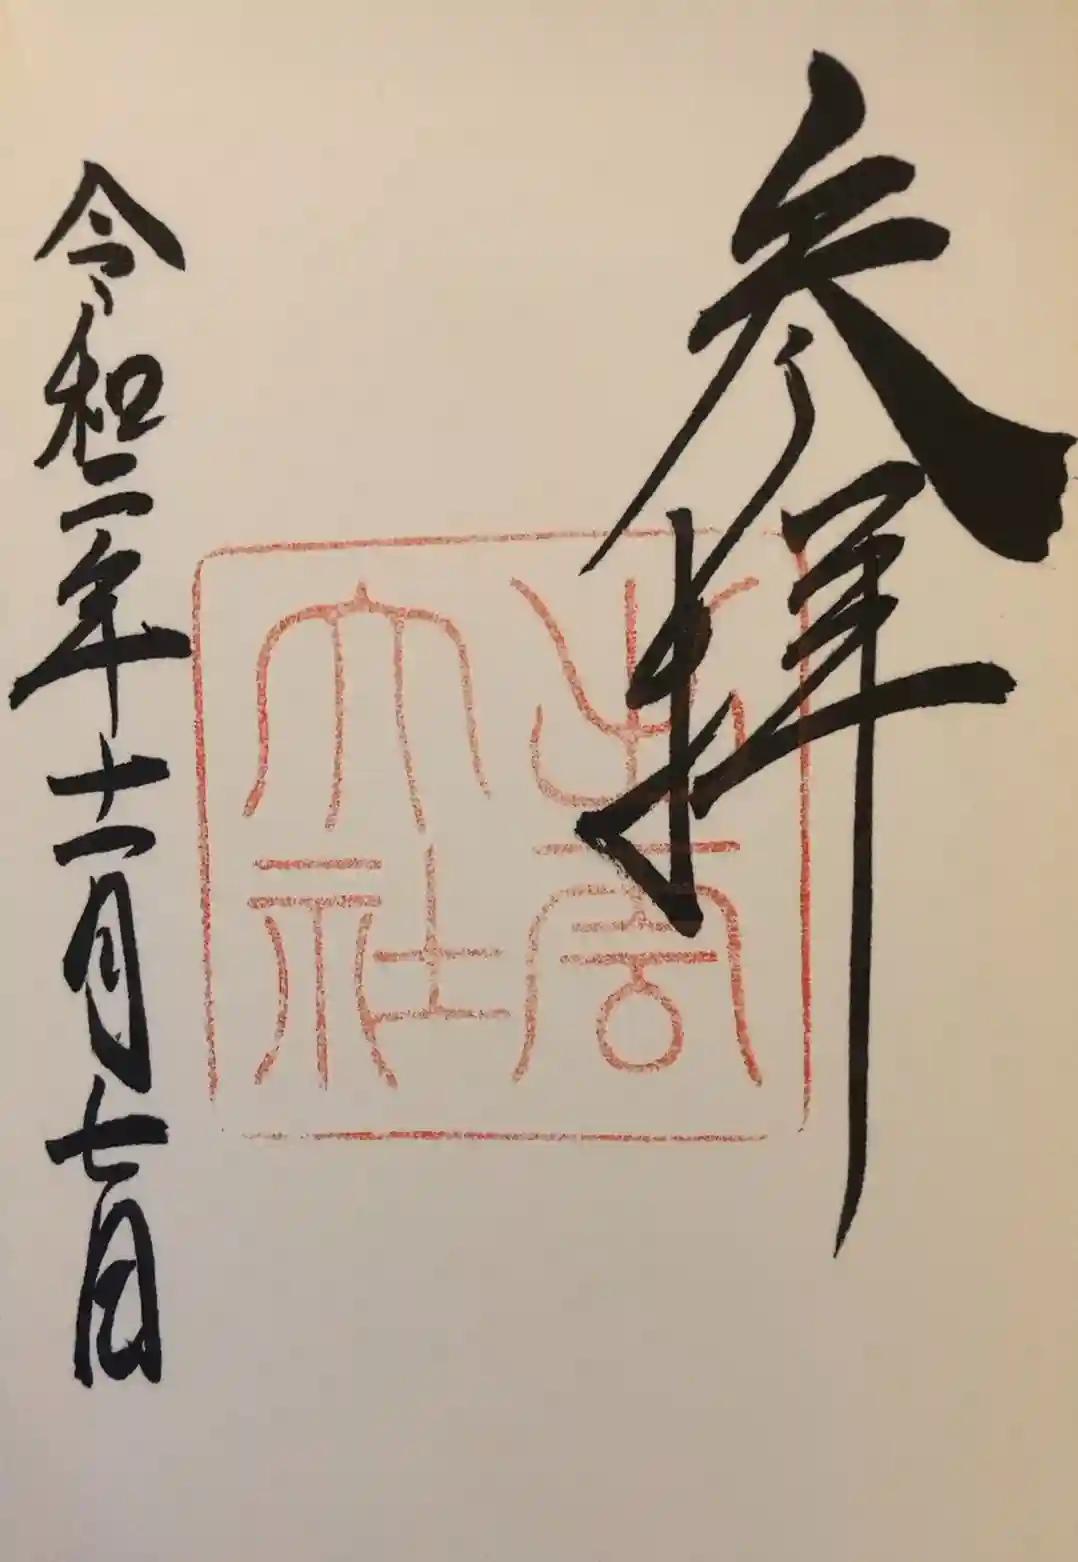 参拝
出雲大社
令和二年十一月七日